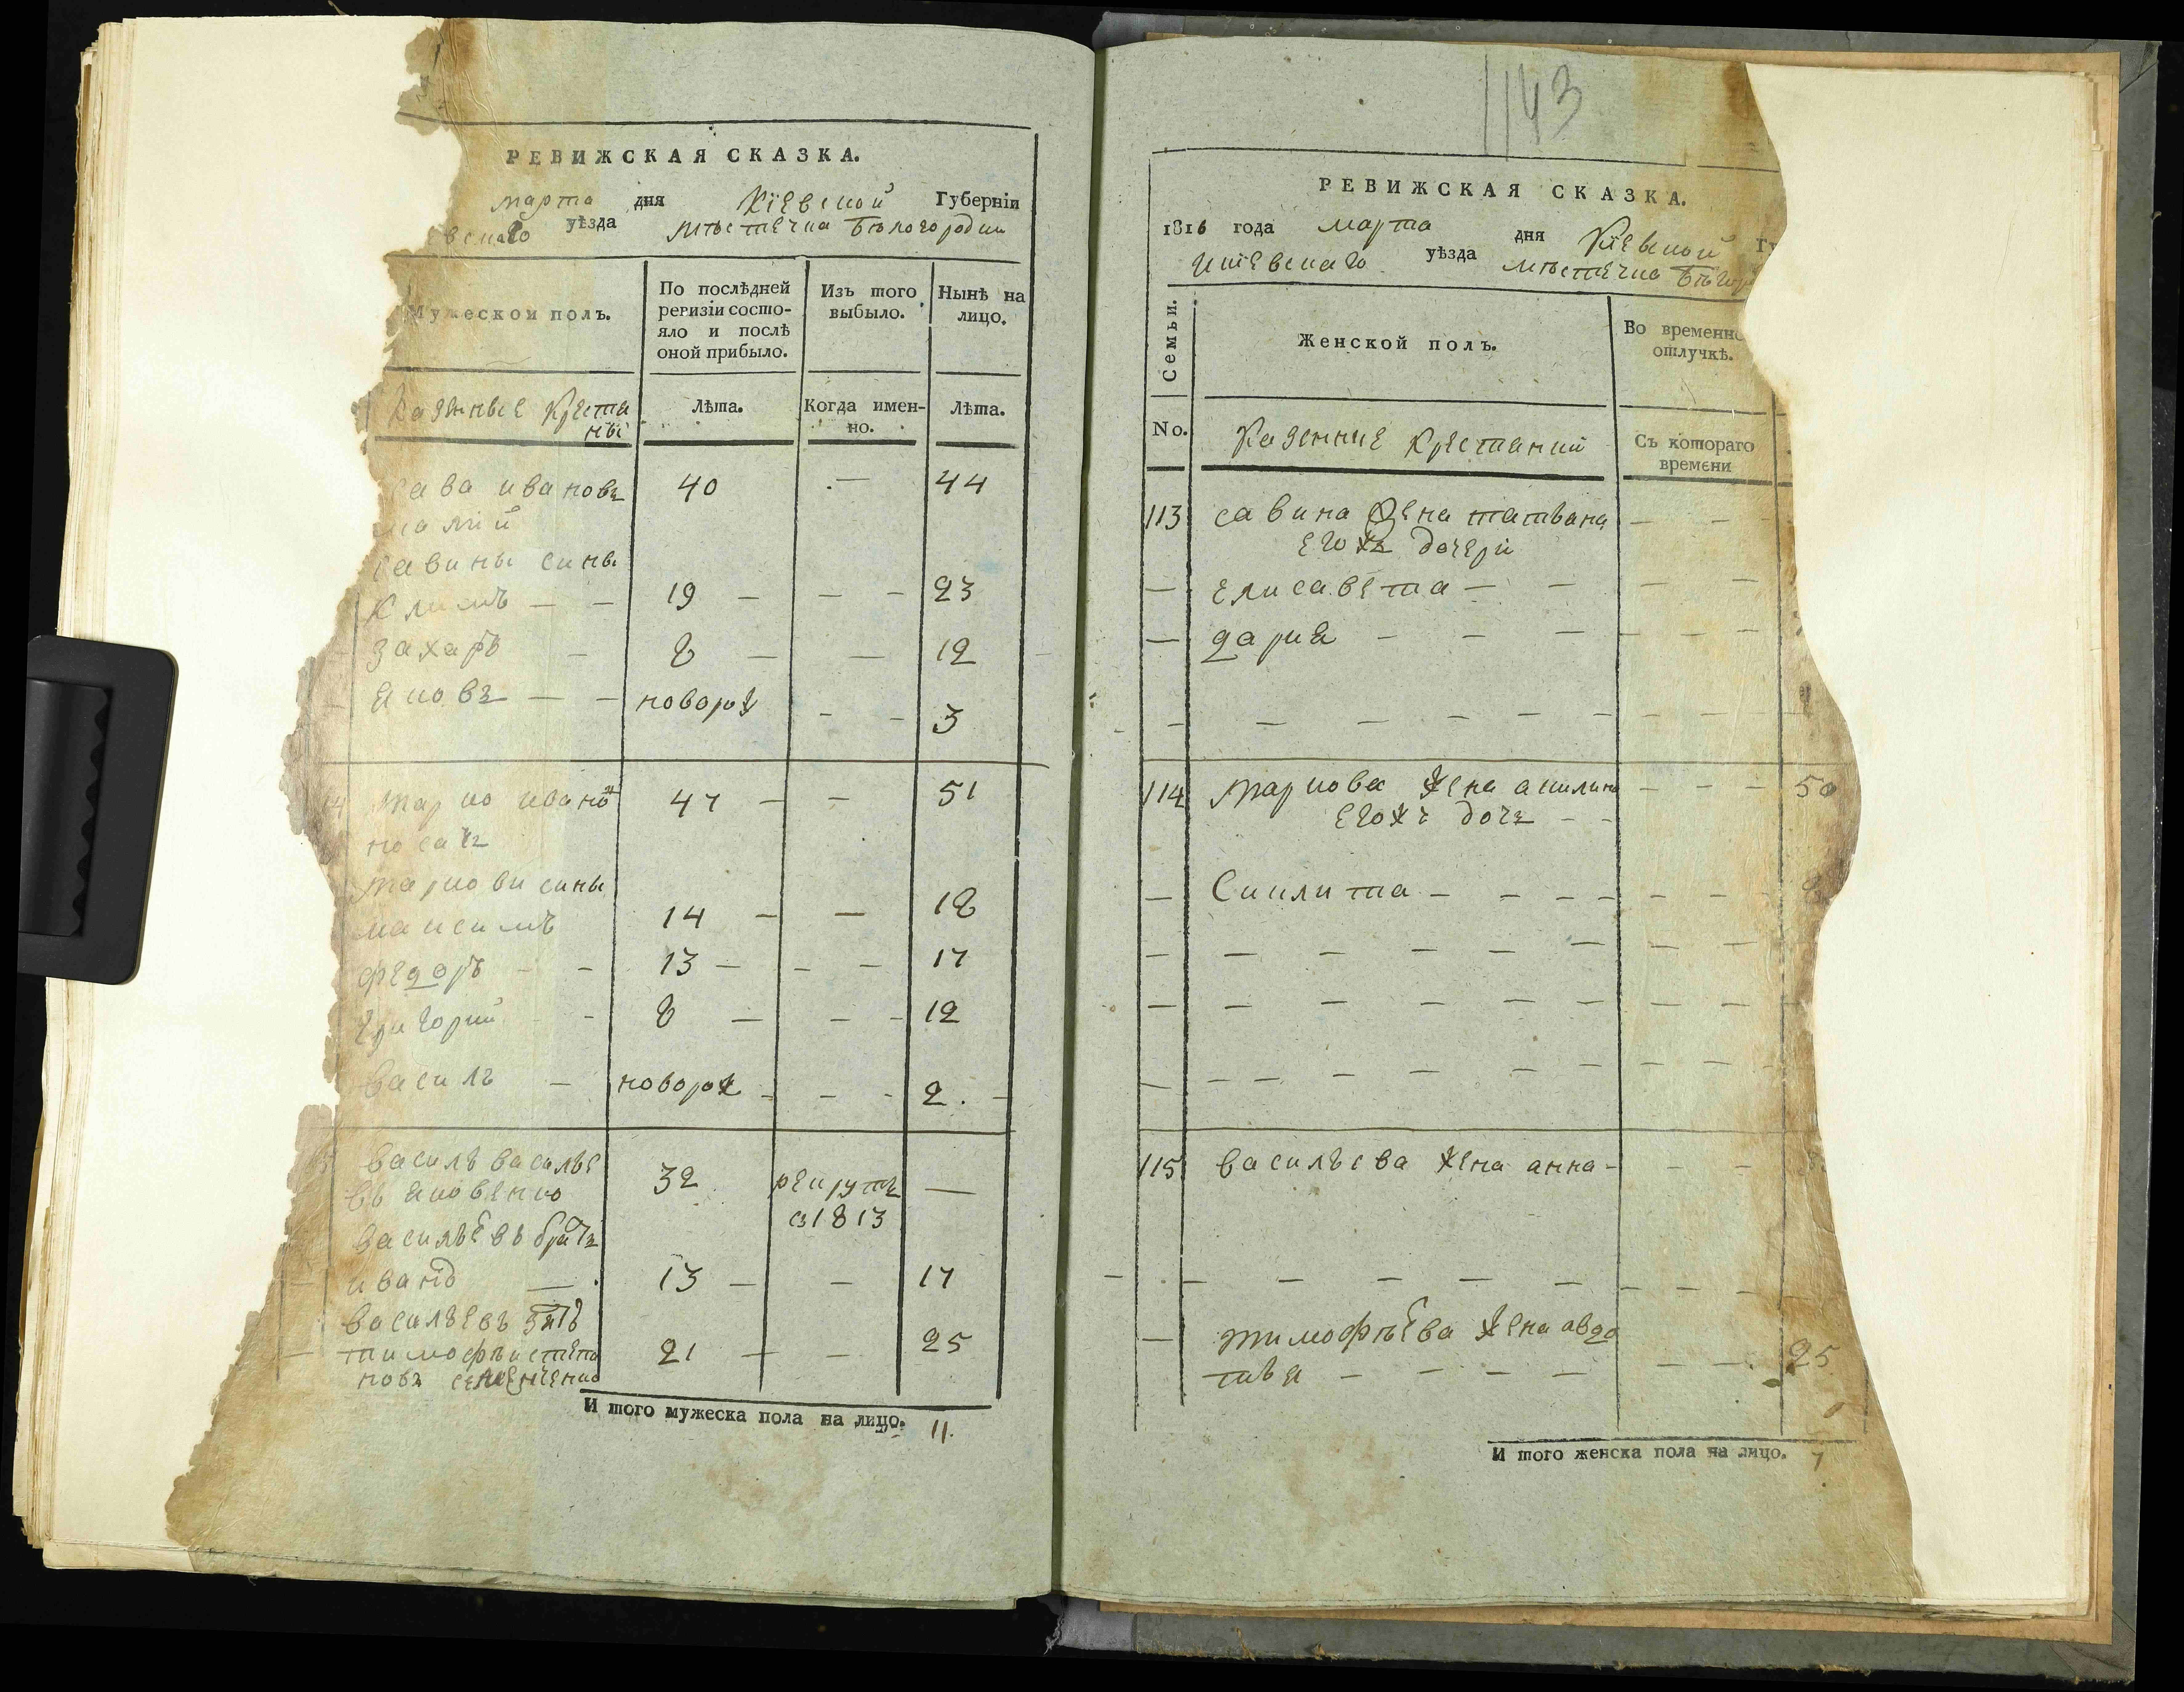 РЕВИЖСКАЯ СКАЗКА.
марта дня Кіевской Губерніи
уѣзда мѣстечка Бѣлогородки
Мужеской полъ.
По послѣдней ревизіи состо-
яло и послѣ
оной прибыло.
Изъ того
выбыло.
Нынѣ на
лицо.
Казенные Крестя
ны
Лѣта.
Когда имен-
но.
Лѣта.
сава ивановъ 40 — 44
савины сины
климъ — — 19 — — — 23
захаръ — 8 — — 12
яковъ — —новорож — — 3
марко ивановъ 47 — — 51
носачъ
маркови сины
максимъ 14 — — 18
федоръ — — 13 — — — 17
григорий — — 8 — — — 12
василь — новорож — — — 2. —
василь василье
въ яковенко 32 рекрутъ —
въ 1813
васильевъ братъ
иванъ — 13 — — 17
васильевъ зять
тимофѣй степа 21 — — 25
новъ семененко
И того мужеска пола на лицо. 11.
1143
РЕВИЖСКАЯ СКАЗКА.
1816 года марта дня Кіевской
Кіевскаго уѣзда мѣстечка
Семьи.
Женской полъ.
Во временно
отлучкѣ.
No.
Казенние Крестянки
Съ котораго
времени
113 савина жена татьана — —
егожъ дочери
— елисавета — — — —
— дария — — — — — —
— — — — — — — — —
114 маркова жена акилина — — — 50
егожъ дочь — —
— Киилита — — — — — — —
— — — — — — — — —
— — — — — — — — —
— — — — — — — — —
115 васильева жена анна — — —
— — — — — — — — —
— тимофѣева жена авдо
тья — — — — — — 25
И того женска пола на лицо. 7